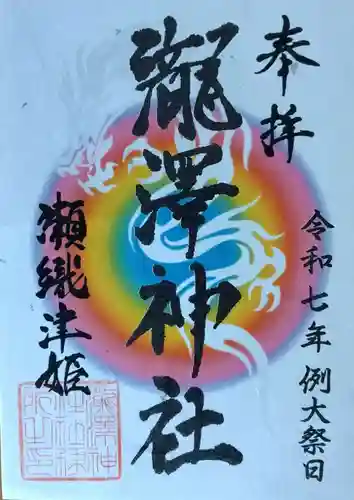 奉拝
令和七年例大祭日
瀧澤神社
瀬織津姫